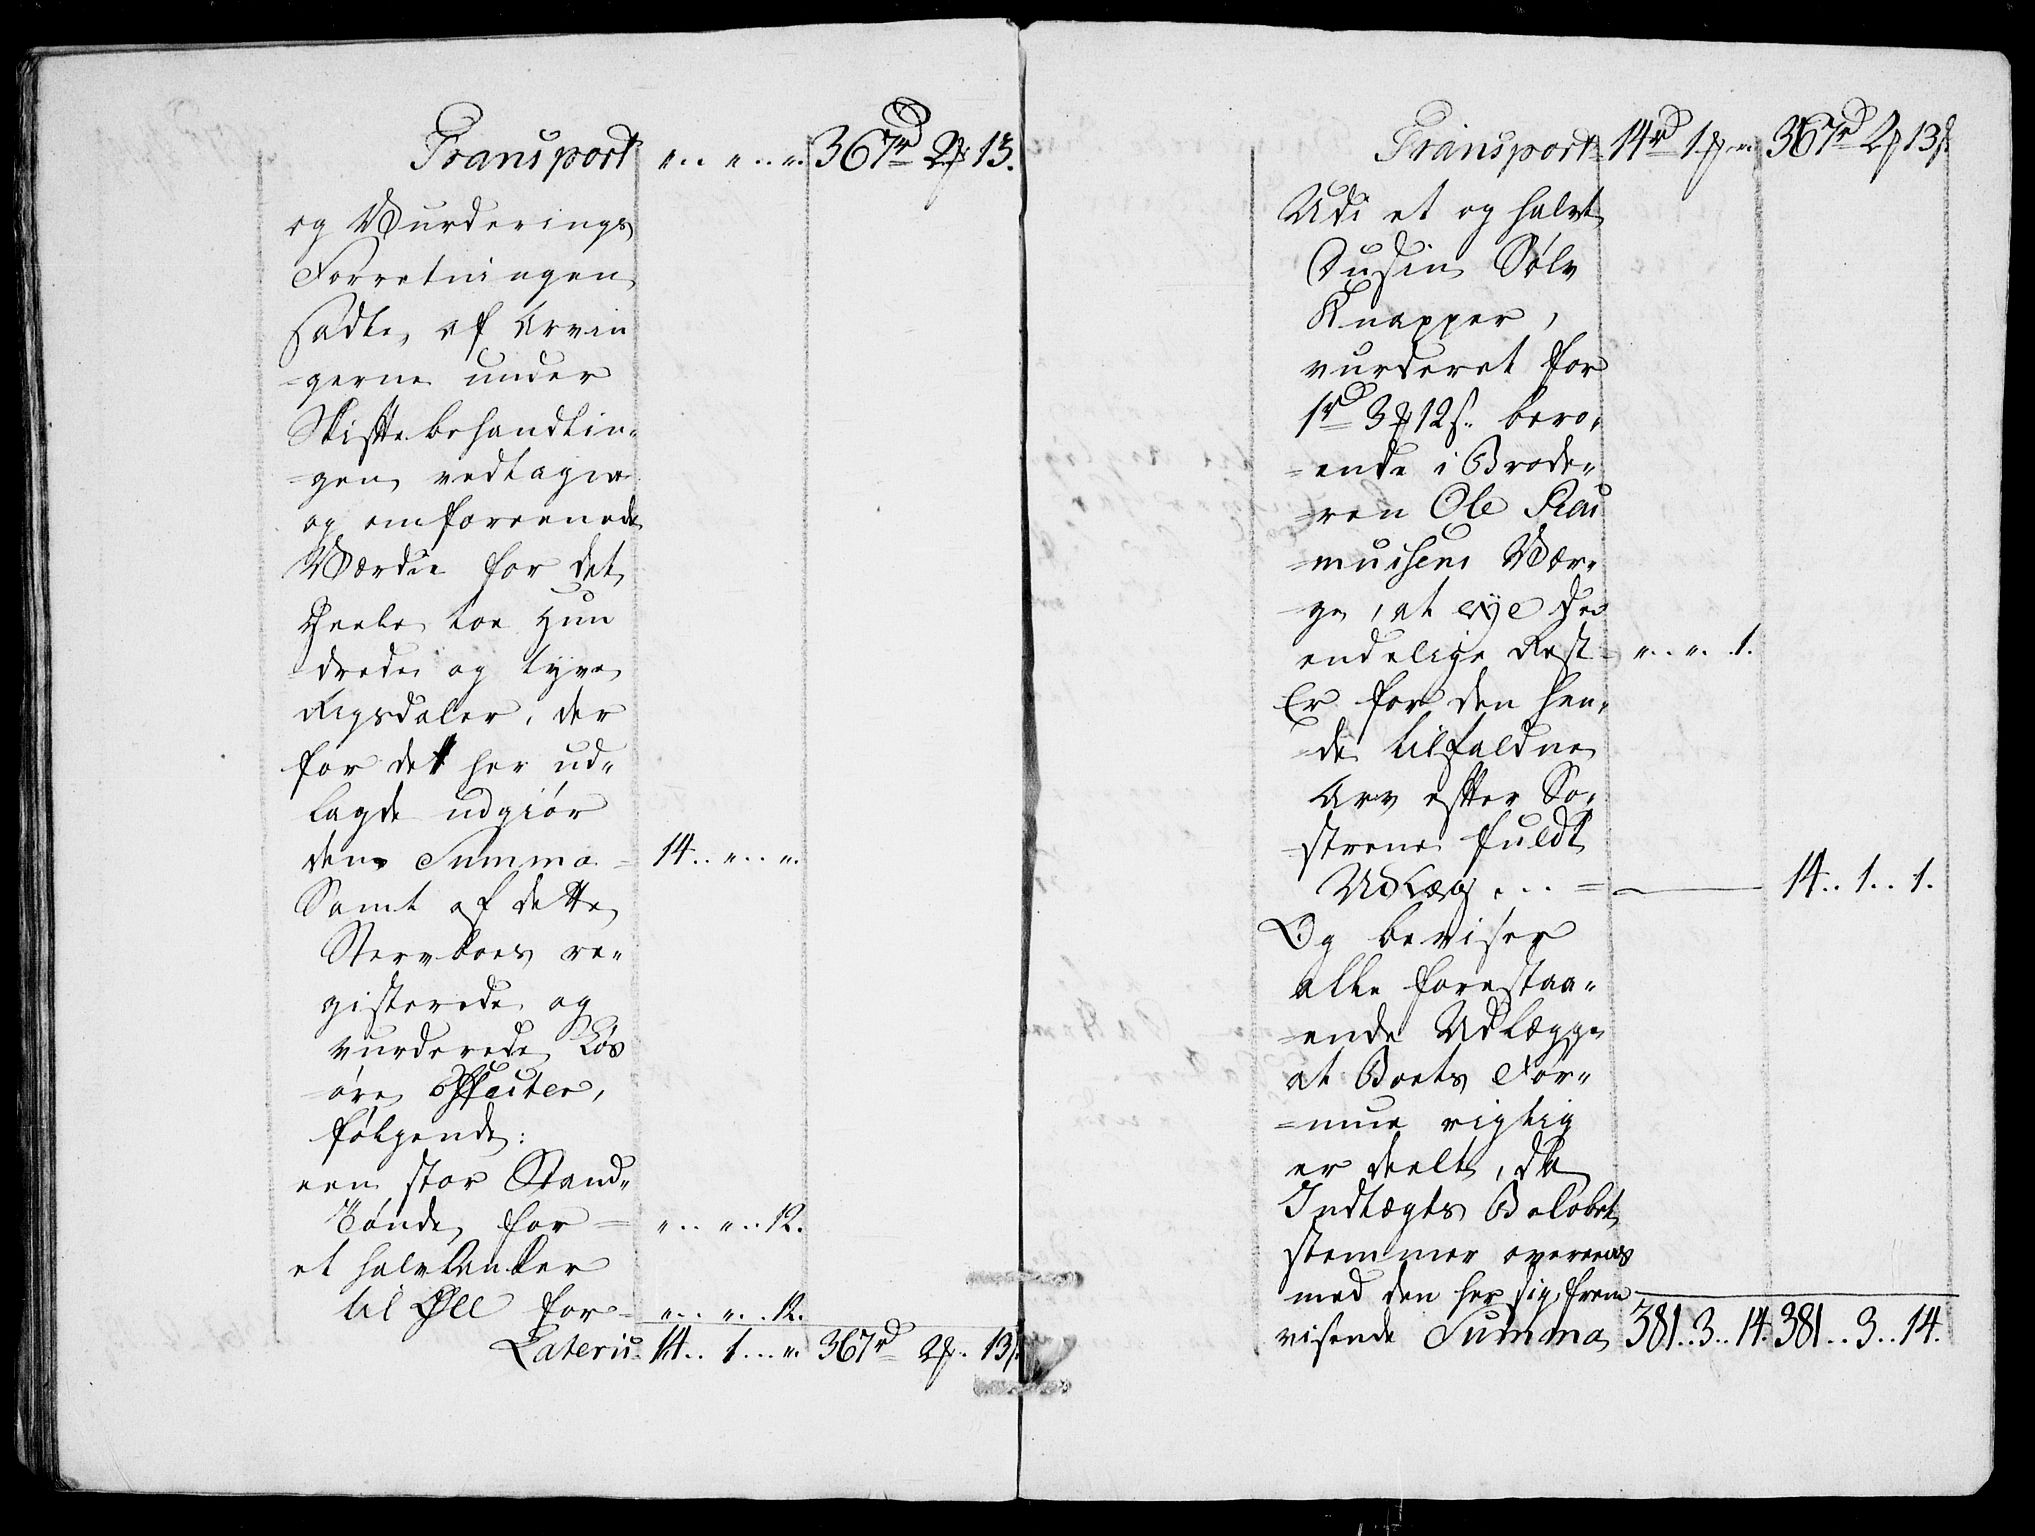 Transport „.. „.. „. 367rd 2ß 13.
og Vurderings
Forretningen
sadte, af Arvin
-gerne under
Skiftebehandlin-
-gen vedtagne
og omforeenede
Værdie for det
Heele toe Hun
-drede og tyve
Rigsdaler, der
for det her ud-
lagde udgiør
den Summa = 14.. „.. „.
Samt af dette
Stervboes re-
gisterede og
vurderede Løs
-øre Effecter,
følgende:
een stor Stand-
Tønde for = „.. „.. 12.
et halv Anker
til Øll for - „.. „.. 12.
Lateris 14.. 1... „. 367rd 2ß. 13ß
Transport 14rd 1ß „. 367rd 2ß 13ß
Udi et og halvt
Dusin Sølv
Knapper,
vurderet for
1rd 3ß 12s. bero-
-ende i Brode-
-ren Ole Ras
-musens Vær-
-ge, at nye den
endelige Rest - „.. „.. 1.
Er for den hen-
-de tilfaldne
Arv efter Sø-
-strene fuldt
Udlæg ... = 14.. 1.. 1.
Og beviser
alle forestaa-
-ende Udlægge
at Boets For-
-mue rigtig
er deelt, da
Indtægts Beløbet
stemmer overeens
med den her sig frem
visende Summa 381.. 3.. 14. 381.. 3.. 14.